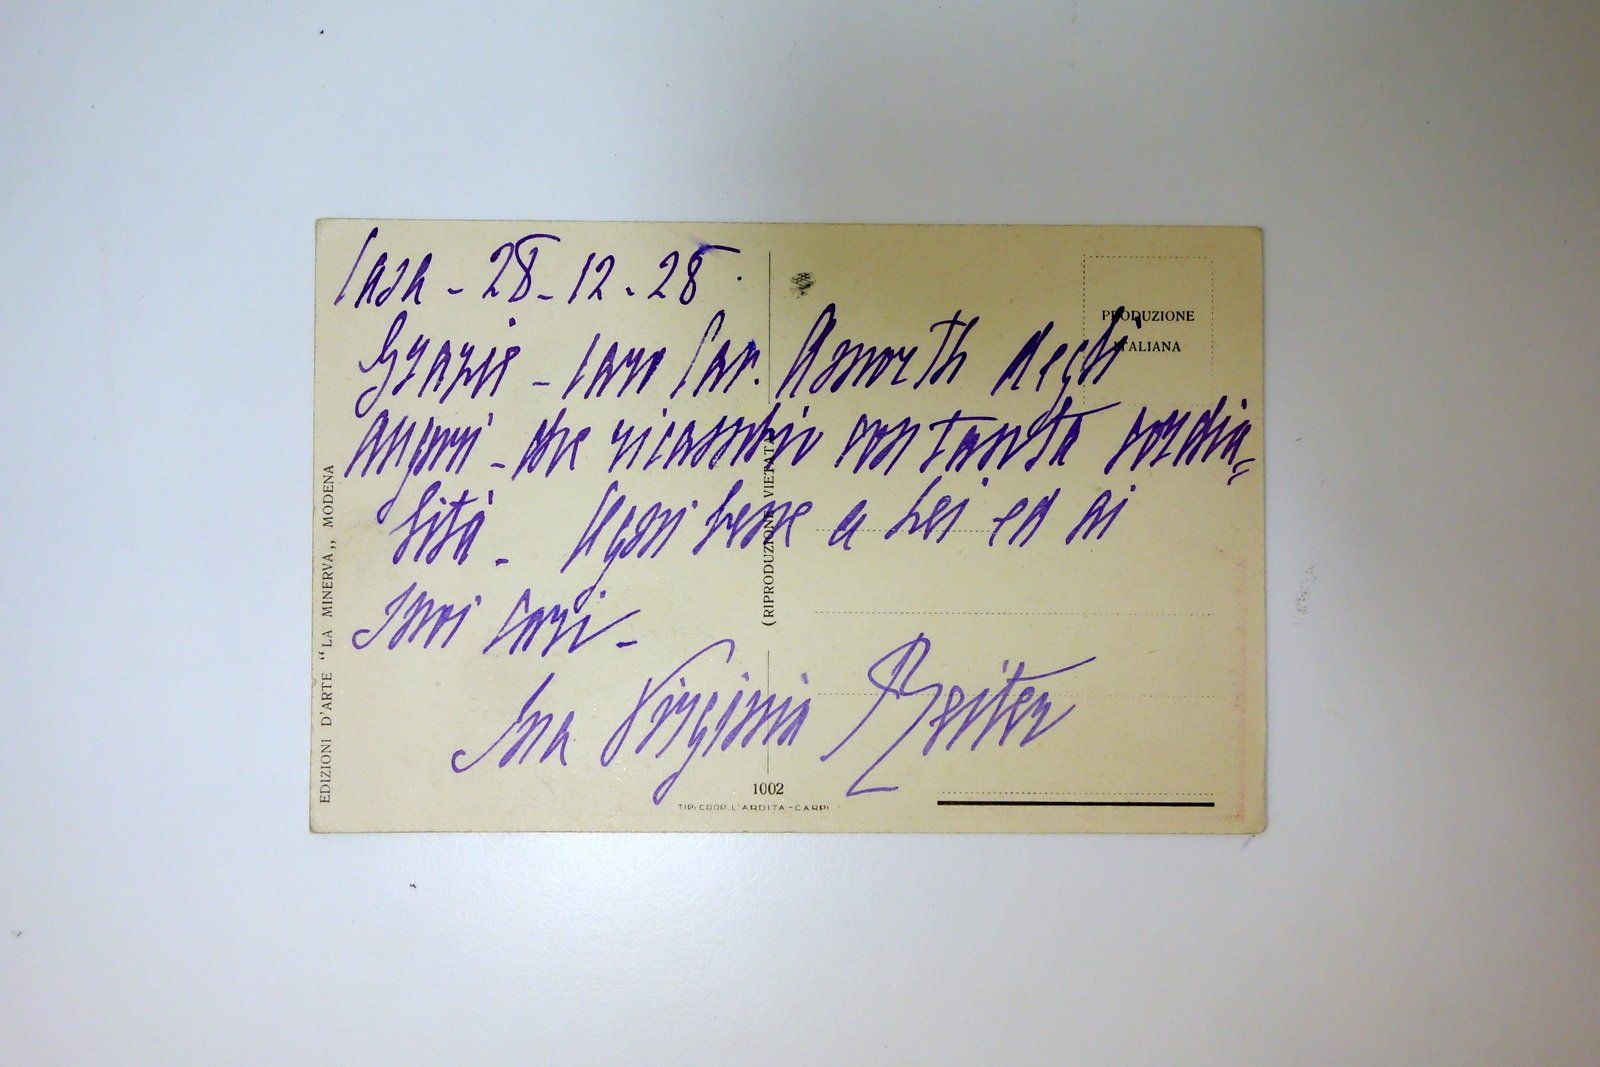 Casa - 28 - 12 - 28.
Grazie - caro Cav. Amorth degli
auguri - che ricambio con tanta cordia=
lità. Ogni bene a Lei ed ai
suoi cari -
Sua Virginia Reiter
PRODUZIONE
ITALIANA
(RIPRODUZIONE VIETATA)
EDIZIONI D'ARTE "LA MINERVA,, MODENA
1002
TIP. COOP. L'ARDITA - CARPI